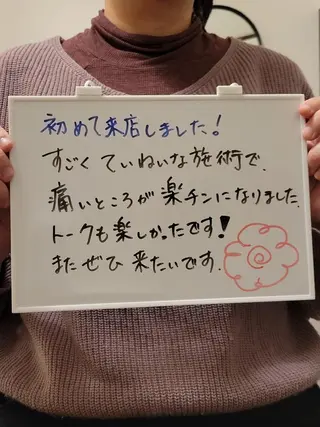 初めて来店しました!
すごくていねいな施術で、
痛いところが楽チンになりました。
トークも楽しかったです!
またぜひ来たいです。